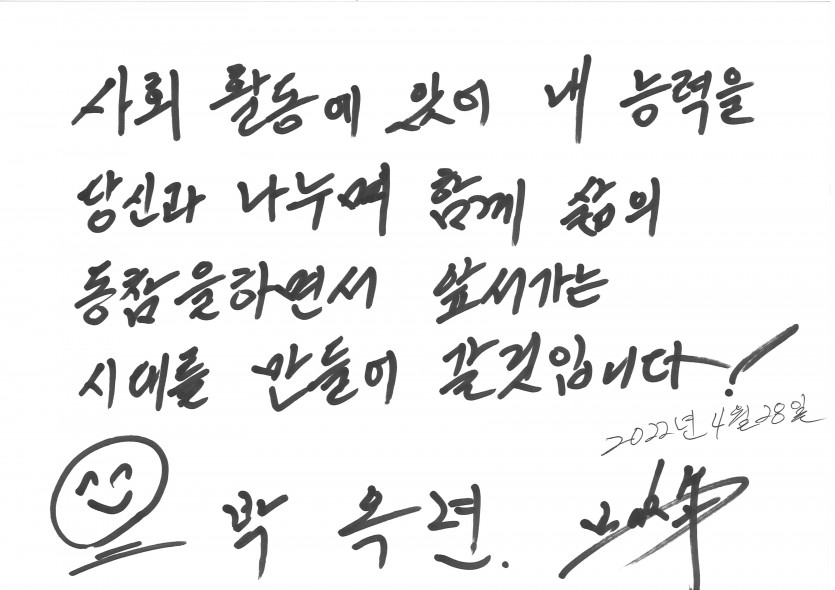 사회 활동에 있어 내 능력을
당신과 나누며 함께 삶의
동참을하면서 앞서가는
시대를 만들어 갈것입니다!
2022년 4월 28일
박 옥 련.